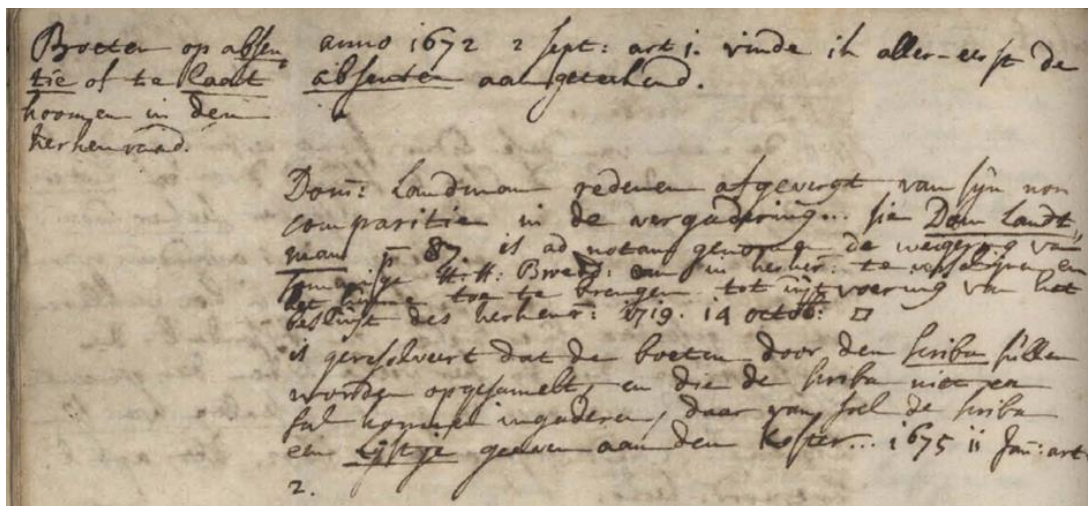 Boeten op absen„
tie of te laat
koomen in den
kerkenraad.
anno 1672 2 sept: art 1. vinde ik aller-eerst de
absenten aangetekend.
Dom: Landman redenen afgevergt van sijn non
comparitie in de vergadering... sie Dom Landt„
man p 87. is ad notam genomen de weigering van
H:H: Broed: om in kerkenr: te verschijnen en
het toe te brengen tot uijtvoering van het
besluijt des kerkenr: 1719. 14 octob:
is geresolveert dat de boeten door den scriba sullen
worden opgesamelt, en die de scriba niet en
sal konnen ingaderen, daar van sal de scriba
een Lijstje geeven aan den Koster... 1675 11 Jan: art.
2.